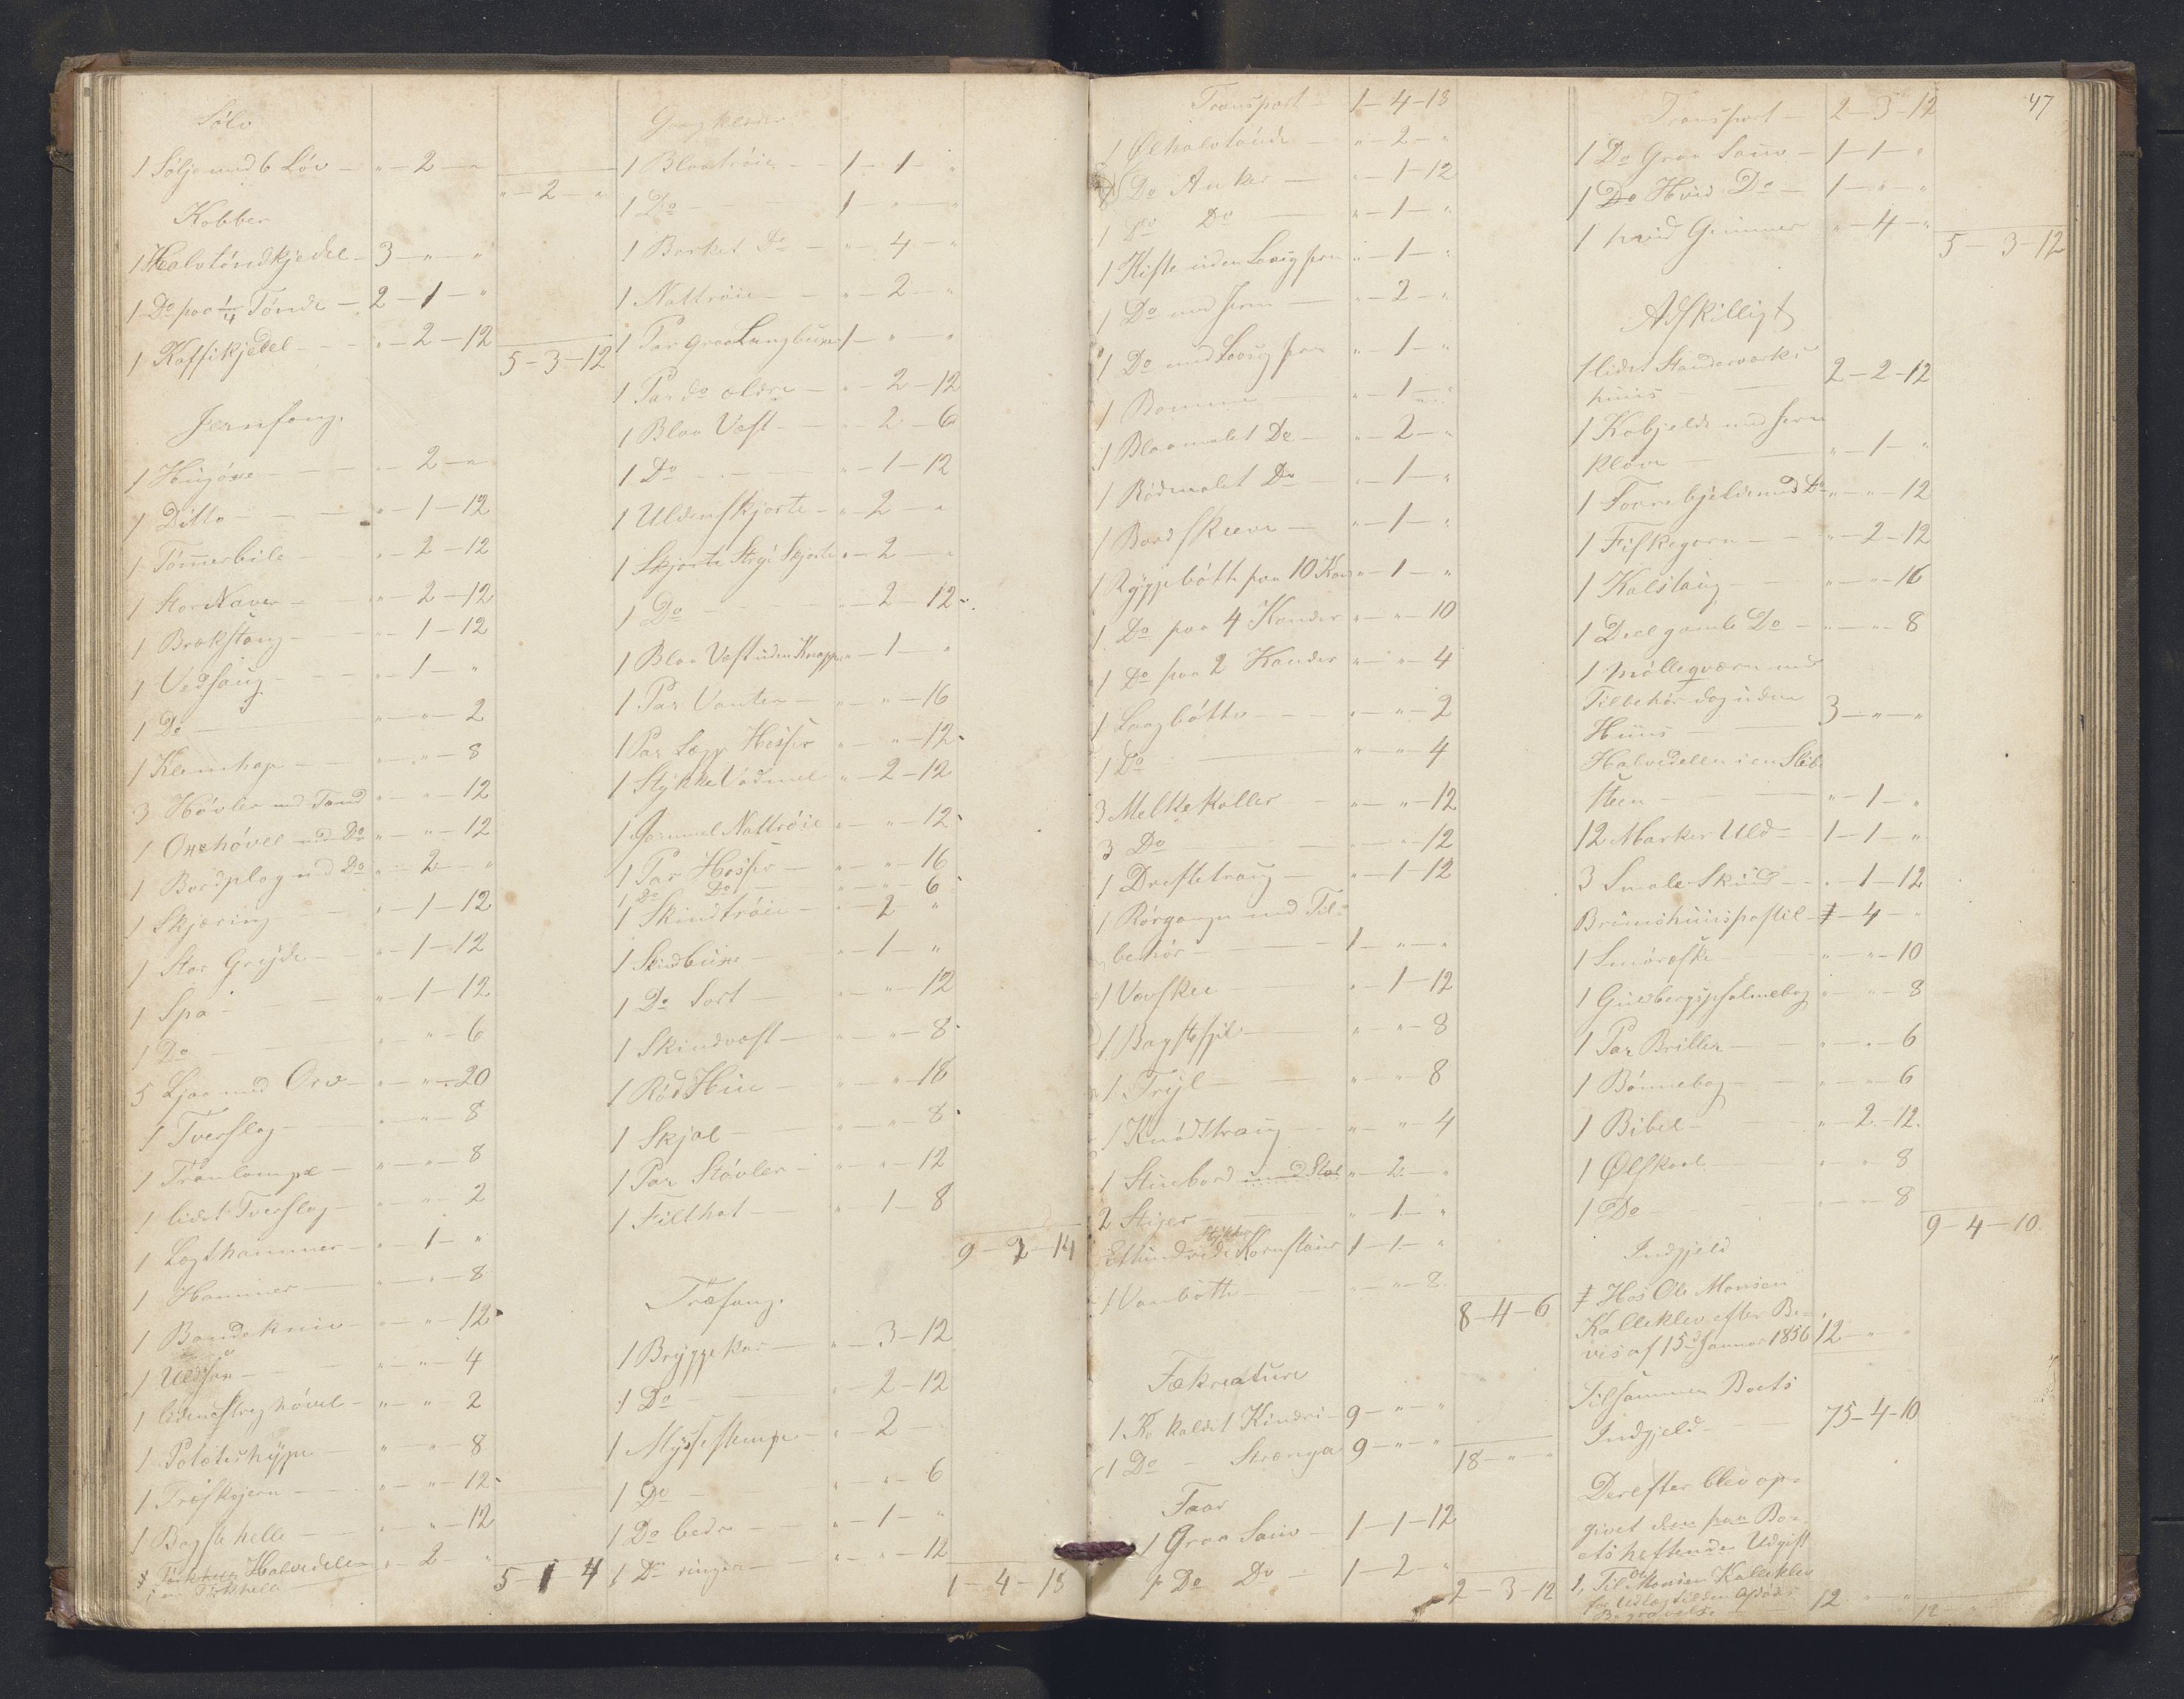 Sölv
1 Sölje med 6 Löv — " — 2 — "
" — 2 — "
Kobber
1 Halvtöndkjedel — 3 — " — "
1 Do paa 1/4 Tönde — 2 — 1 — "
1 Kaffikjedel — " — 2 — 12
5 — 3 — 12
Jernfang.
1 Hugöxe — " — 2 — "
1 Ditto — " — 1 — 12
1 Tömmerbile — " — 2 — 12
1 Stor Naver — " — 2 — 12
1 Brækstang — " — 1 — 12
1 Vedsaug — " — 1 — "
1 Do — " — " — 2
1 Klemhage — " — " — 8
3 Hövler med Tand — " — " — 12
1 Oxehövel med Do — " — " — 12
1 Bordplog med Do — " — 2 — "
1 Skjæring — " — 1 — 12
1 Stor Gryde — " — 1 — 12
1 Spa — " — 1 — 12
1 Do — " — " — 6
5 Ljaa med Orv — " — " — 20
1 Tverslag — " — " — 8
1 Tranlampe — " — " — 8
1 lidet Tverslag — " — " — 2
1 Lægthammer — " — 1 — "
1 Hammer — " — " — 8
1 Baandekniv — " — " — 12
1 Uldsax — " — " — 4
1 liden Streghövel — " — " — 2
1 Potetershyppe — " — " — 8
1 Træskojern — " — " — 12
1 Bagstehelle — " — " — 12
Halvedelen — " — 2 — "
i en Tökhelle
5 — 1 — 4
Gangklæder
1 Blaatröie — 1 — 1 — "
1 Do — 1 — " — "
1 Borket Do — " — 4 — "
1 Nattröie — " — 2 — "
1 Par graa Langbuxer 1 — " — "
1 Par do ældre — " — 2 — 12
1 Blaa Vest — " — 2 — 6
1 Do — " — 1 — 12
1 Uldenskjorte — " — 2 — "
1 Skjorte Strye Skjorte " — 2 — "
1 Do — " — 2 — 12
1 Blaa Vest uden Knapper " — 1 — "
1 Par Vanter — " — " — 16
1 Par Læge Hosser " — " — 12
1 Stykke Vadmel " — 2 — 12
1 Gammel Nattröie " — " — 12
1 Par Hosser — " — " — 16
1 Do Do — " — " — 6
1 Skindtröie — " — 2 — "
1 Skindbuxe — " — 1 — "
1 Do Sort — " — " — 12
1 Skindvest — " — " — 8
1 Röd Hue — " — " — 18
1 Skjal — " — " — 8
1 Par Stövler — " — " — 12
1 Filthat — " — 1 — 8
9 — 2 — 14
Træfang.
1 Bryggekar — " — 3 — 12
1 Do — " — 2 — 12
1 Mysseskumpe — " — 2 — "
1 Do — " — " — 6
1 Do bedre — " — 1 — "
1 Do ringere — " — " — 12
1 — 4 — 18
Transport — 1 — 4 — 18
1 Ölhalvtönde — " — 2 — "
8 Do Anker — " — 1 — 12
1 Do Do — " — 1 — "
1 Kiste uden Laasg Jern " — 1 — "
1 Do med Jern — " — 2 — "
1 Do med Laasg Jern " — 1 — "
1 Bomme — " — 1 — "
1 Blaamalet Do — " — 2 — "
1 Rödmalet Do — " — 1 — "
1 Bordskive — " — 1 — "
1 Ryggebötte paa 10 Kander " — 1 — "
1 Do paa 4 Kander " — " — 10
1 Do paa 2 Kander " — " — 4
1 Laagbötte — " — " — 2
1 Do — " — " — 4
3 Melkekoller — " — " — 12
3 Do — " — " — 12
1 Drettetraug — " — 1 — 12
1 Rörgange med Til-
behör — 1 — " — "
1 Vævskee — " — 1 — 12
1 Bagstefjel — " — " — 8
1 Tryl — " — " — 8
1 Knodstraug — " — " — 4
1 Stuebord med Stol " — 2 — "
2 Stiger — " — 1 — "
Stykker
Ethundrede Kornstaur 1 — 1 — "
1 Vandbötte — " — " — 8
8 — 4 — 6
Fækreature
1 Ko kaldet Kindri — 9 — " — "
1 Do — Strænga 9 — " — "
18 — " — "
Faar
1 Graa Sauv — 1 — 1 — 12
1 Do Do — 1 — 2 — "
2 — 3 — 12
47
Transport — 2 — 3 — 12
1 Do Graa Sauv — 1 — 1 — "
1 Do Hvid Do — 1 — " — "
1 hvid Gimmer " — 4 — "
5 — 3 — 12
Adskilligt
1 lidet Standerværks-
huus — 2 — 2 — 12
1 Kobjelde med Jern
klave — " — 1 — "
1 Faarebjelde med Do " — " — 12
1 Fiskegarn — " — 2 — 12
1 Kalstaug — " — " — 16
1 Deel gamle Do — " — " — 8
1 Möllegværn med
Tilbehör dog uden
Huus — 3 — " — "
Halvedelen i en Slibe
steen — " — 1 — "
12 Marker Uld — 1 — 1 — "
3 Smale Skind — " — 1 — 12
— 4 — "
1 Smöræske — " — " — 10
1 Guldbergspsalmebog " — " — 8
1 Par Briller — " — " — 6
1 Bönnebog — " — " — 6
1 Bibel — " — 2 — 12
1 Ölskaal — " — " — 8
1 Do — " — " — 8
9 — 4 — 10
Indgjeld
Hos Ole Monsen
Kalleklev efter Be-
vis af 15d Januar 1856 12 — " — "
Tilsammen Boets
Indgjeld — 75 — 4 — 10
Derefter blev op-
givet den paa Bo-
ets heftende Udgift
1, Til Ole Monsen Kalleklev
for Udlæg til den Afdödes
Begravelse — 12 — " — "
12 — " — "